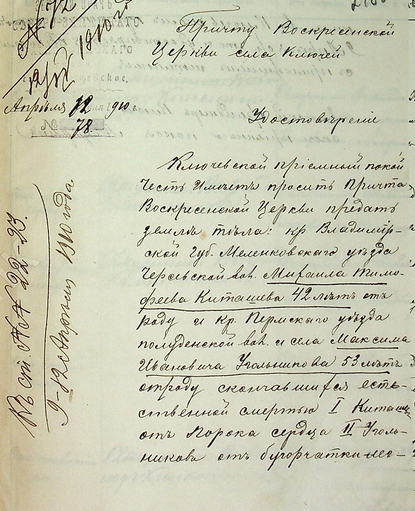 Причту Воскресенской
Церкви села Ключей
Апрѣля 12 910 г.
№ 78
Удостовѣреніе
Ключевской пріемный покой
Честь имѣетъ просить Причта
Воскресенской Церкви предать
землѣ тѣла: кр Владимір-
ской Губ. Меленковскаго уѣзда
вол. Михаила Тимо-
феева Киташева 42 лѣтъ отъ
роду и Кр. Пермскаго уѣзда
вол. и села Максима
Ивановича Угольникова 53 лѣтъ
отроду скончавшихся есте-
ственной смертью I Киташевъ
отъ Порока сердца II Уголь-
никова отъ бугорчатки лег-
Къ ст № № 22-23.
1910 года